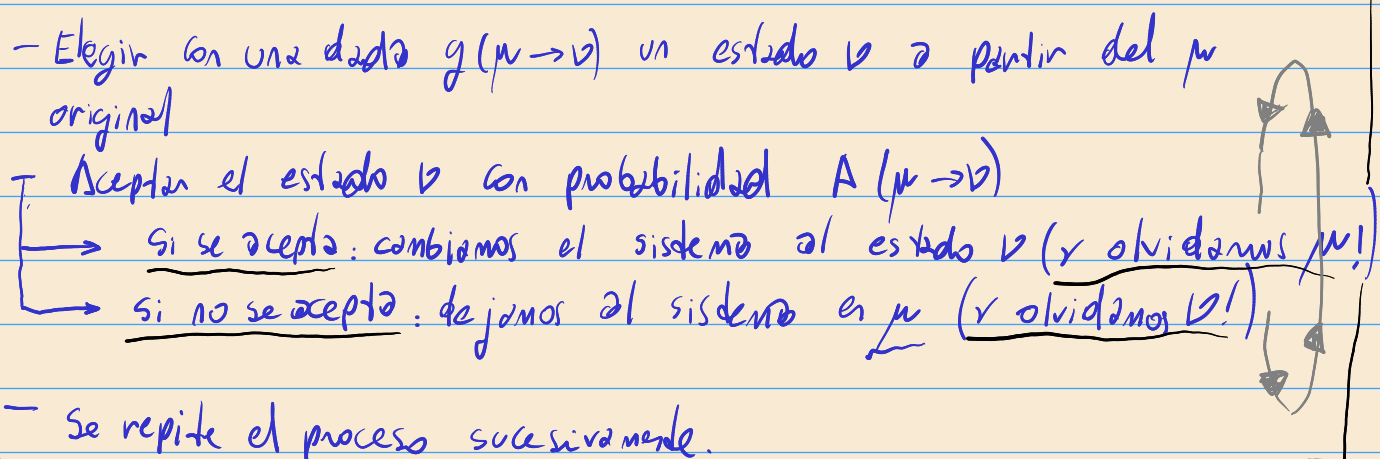 - Elegir con una dada g(μ→ν) un estado ν a partir del μ
original
- Aceptar el estado ν con probabilidad A(μ→ν)
→ si se acepta: cambiamos el sistema al estado ν (y olvidamos μ!)
→ si no se acepta: dejamos al sistema en μ (y olvidamos ν!)
- Se repite el proceso sucesivamente.